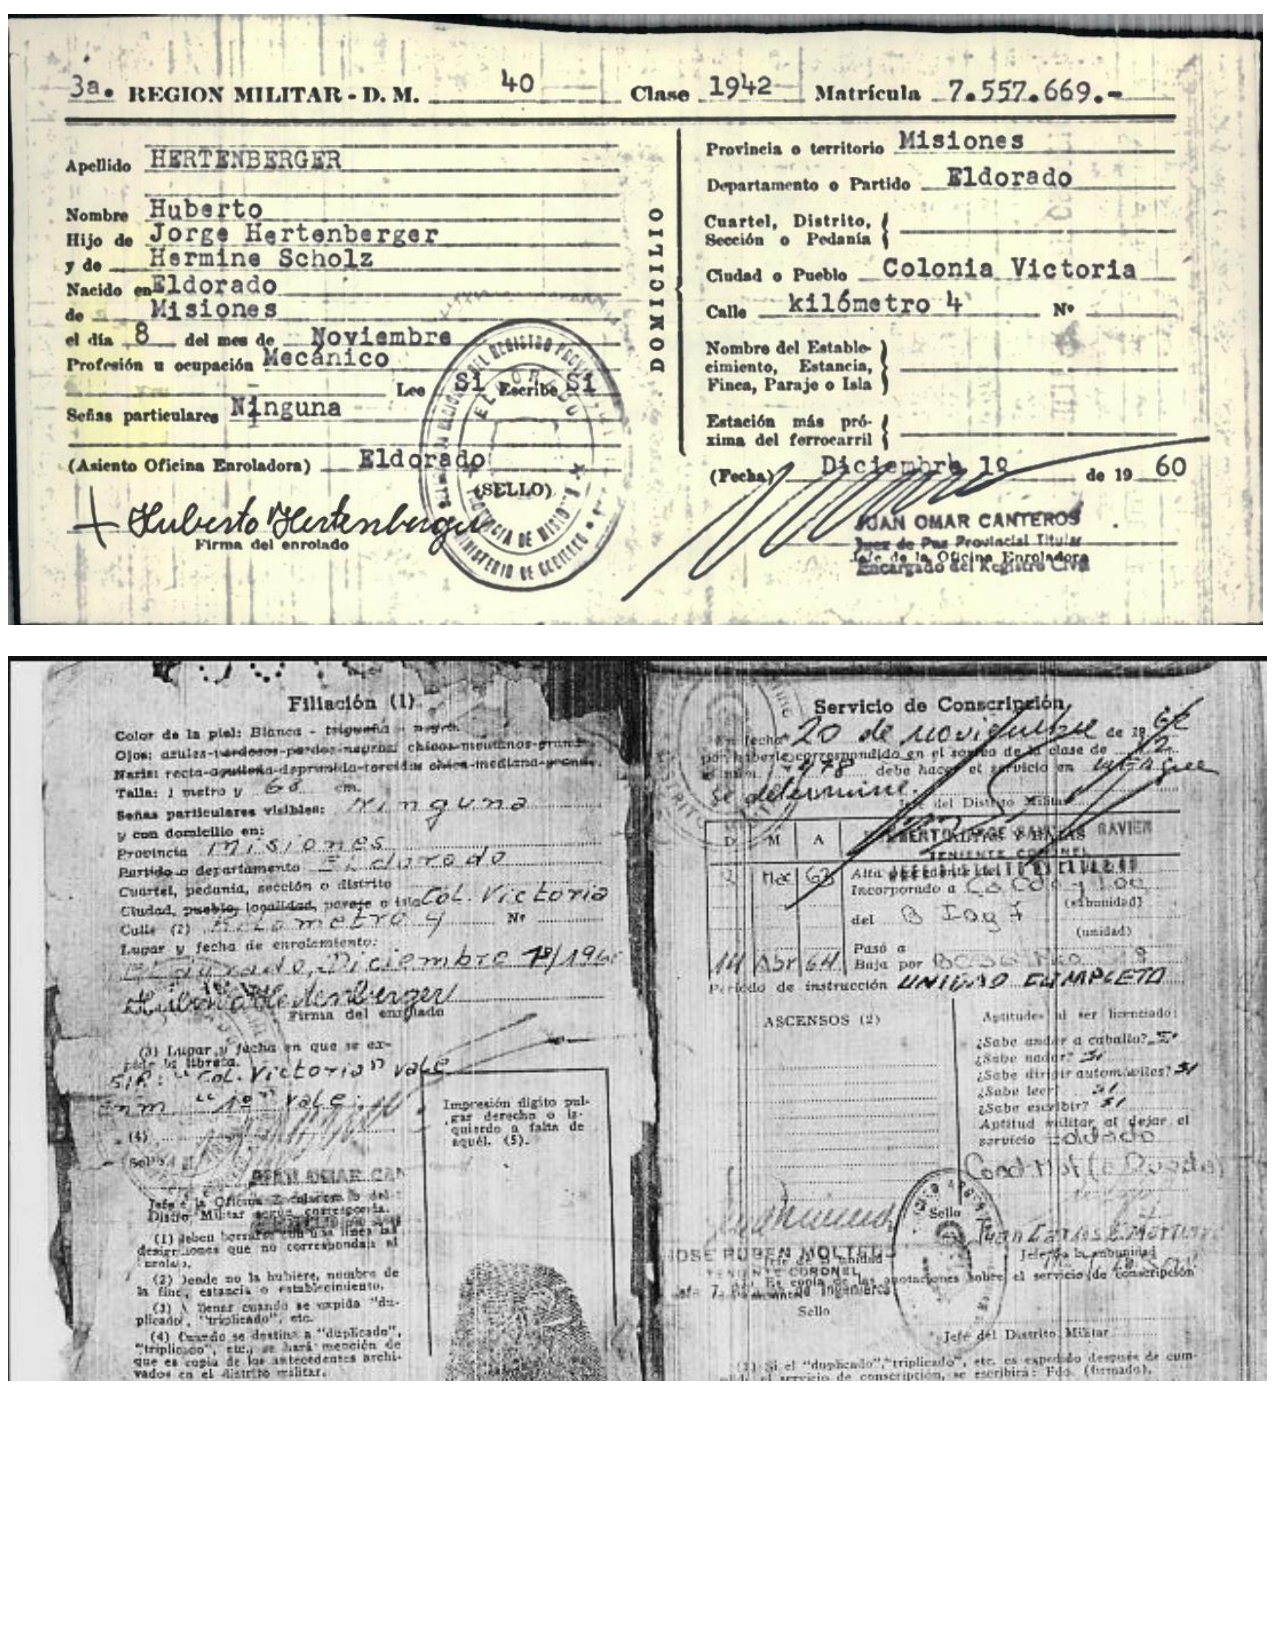 3a. REGION MILITAR - D. M. 40 Clase 1942 Matrícula 7.557.669.-
Apellido HERTENBERGER
Nombre Huberto
Hijo de Jorge Hertenberger
y de Hermine Scholz
Nacido en Eldorado
de Misiones
el día 8 del mes de Noviembre
Profesión u ocupación Mecánico
Lee Sí Escribe Sí
Señas particulares Ninguna
(Asiento Oficina Enroladora) Eldorado
(SELLO)
Huberto Hertenberger
Firma del enrolado
DOMICILIO
Provincia o territorio Misiones
Departamento o Partido Eldorado
Cuartel, Distrito,
Sección o Pedanía
Ciudad o Pueblo Colonia Victoria
Calle kilómetro 4 Nº
Nombre del Estable-
cimiento, Estancia,
Finca, Paraje o Isla
Estación más pró-
xima del ferrocarril
(Fecha) Diciembre 1º de 19 60
JUAN OMAR CANTEROS
Juez de Paz Provincial Titular
Jefe de la Oficina Enroladora
Encargado del Registro Civil
Filiación (1)
Color de la piel: Blanca - trigueña - negra.
Ojos: azules-verdosos-pardos-negros; chicos-medianos-grandes
Nariz: recta-aguileña-deprimida-torcida; chica-mediana-grande.
Talla: 1 metro y 68 cm.
Señas particulares visibles: Ninguna
y con domicilio en:
Provincia Misiones
Partido o departamento Eldorado
Cuartel, pedanía, sección o distrito
Ciudad, pueblo, localidad, paraje o isla Col. Victoria
Calle (2) Kilometro 4 Nº
Lugar y fecha de enrolamiento:
Eldorado, Diciembre 1º/1960
Huberto Hertenberger
Firma del enrolado
(3) Lugar y fecha en que se ex-
pide la libreta.
S/R: "Col. Victoria" vale
Enm "1º" vale
(4)
(Sello)
Jefe de la Oficina Enroladora o del
Distro. Militar según corresponda.
(1) Deben borrarse con una línea las
designaciones que no correspondan al
enrolado.
(2) Donde no la hubiere, nombre de
la finca, estancia o establecimiento.
(3) A llenar cuando se expida "du-
plicado", "triplicado", etc.
(4) Cuando se destina a "duplicado",
"triplicado", etc., se hará mención de
que es copia de los antecedentes archi-
vados en el distrito militar.
Impresión dígito pul-
gar derecho o iz-
quierdo a falta de
aquél. (5).
Servicio de Conscripción
En fecha 20 de noviembre de 1962
por haberle correspondido en el sorteo de la clase de 42
el núm. 978 debe hacer el servicio en
se determine.
Jefe del Distrito Militar
TENIENTE CORONEL
D M A
63 Alta
Incorporado a
(subunidad)
del B Ing 7
(unidad)
Pasó a
14 Abr 64 Baja por
Período de instrucción UNIDAD COMPLETO
ASCENSOS (2)
Aptitudes al ser licenciado:
¿Sabe andar a caballo? Si
¿Sabe nadar? Si
¿Sabe dirigir automóviles? Si
¿Sabe leer? Si
¿Sabe escribir? Si
Aptitud militar al dejar el
servicio Soldado
Cond Mot
Sello
Jefe de la subunidad
JOSE RUBEN
Jefe de la unidad
TENIENTE CORONEL
Es copia de las anotaciones sobre el servicio de conscripción
Sello
Jefe del Distrito Militar
(1) Si el "duplicado", "triplicado", etc. es expedido después de cum-
plido el servicio de conscripción, se escribirá: Fdo. (firmado).